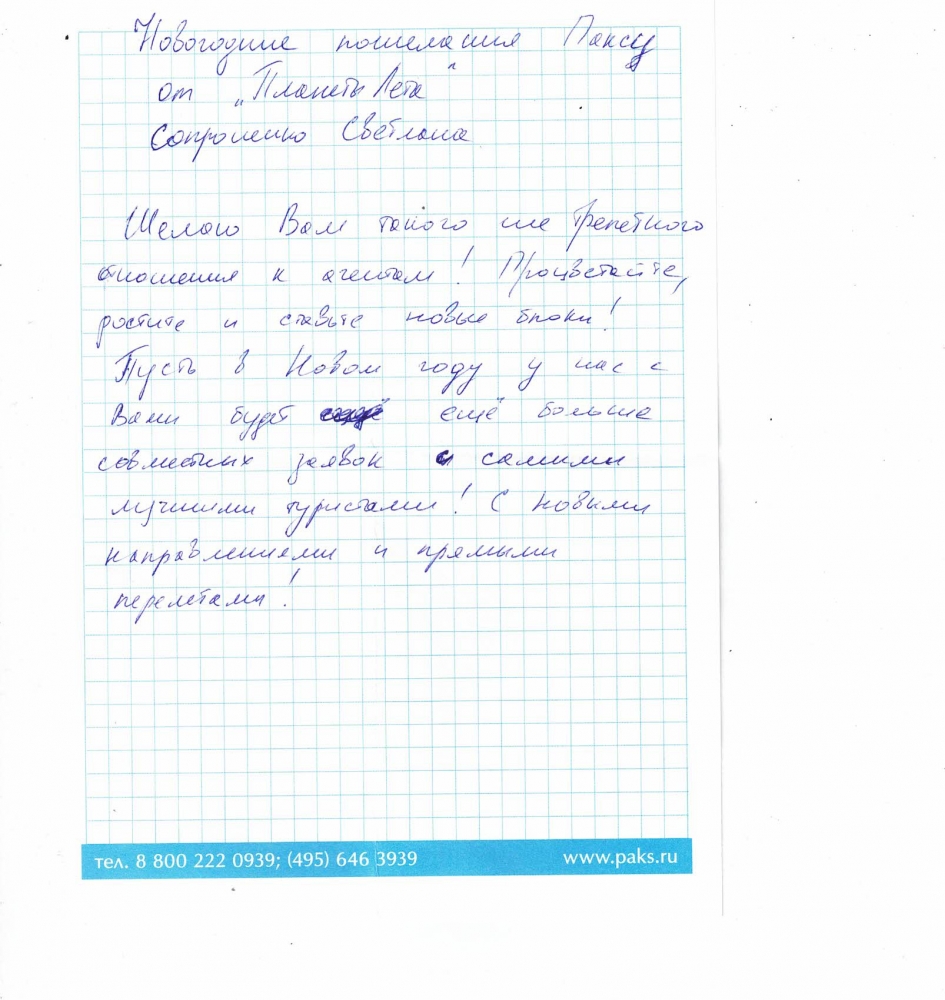 Новогодние пожелания Паксу
от "Планеты Лета"
Сопроненко Светлана
Желаю Вам такого же трепетного
отношения к агентам! Процветайте,
ростите и ставьте новые блоки!
Пусть в Новом году у нас с
Вами будет ещё больше
совместных заявок с самыми
лучшими туристами! С новыми
направлениями и прямыми
перелетами!
тел. 8 800 222 0939; (495) 646 3939 www.paks.ru